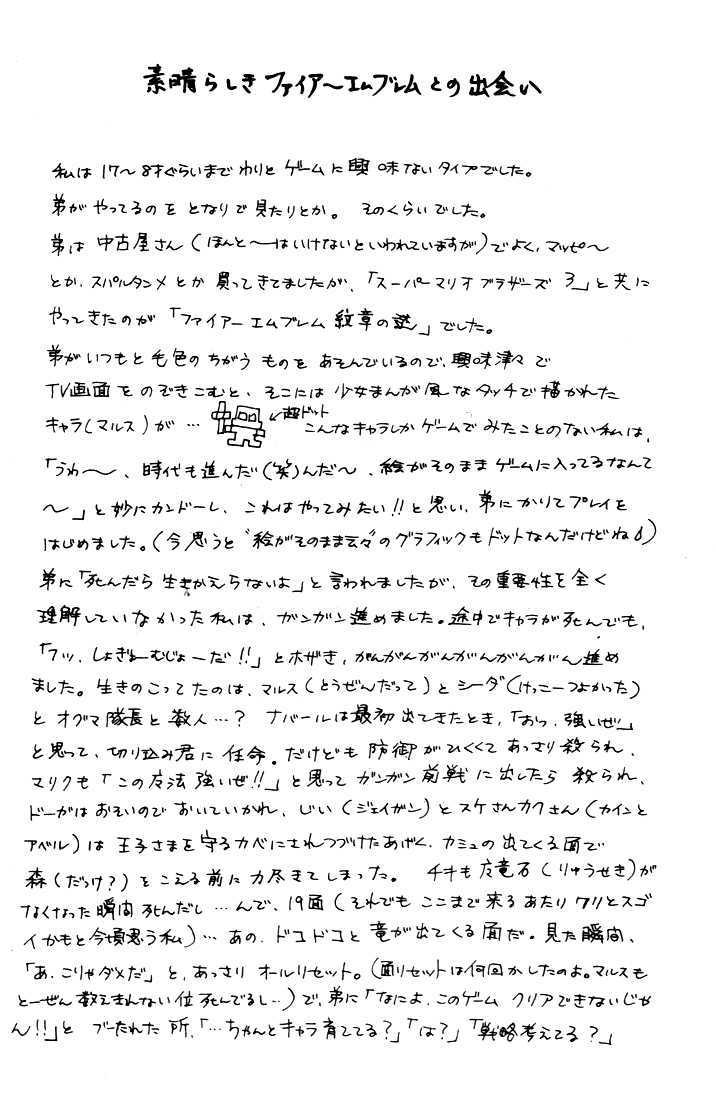 素晴らしきファイアーエムブレムとの出会い
私は17〜8才ぐらいまでわりとゲームに興味ないタイプでした。
弟がやってるのをとなりで見たりとか。そのくらいでした。
弟は中古屋さん(ほんと〜はいけないといわれていますが)でよく、マッピ〜
とか、スパルタンXとか買ってきてましたが、「スーパーマリオブラザーズ3」と共に
やってきたのが「ファイアーエムブレム紋章の謎」でした。
弟がいつもと毛色のちがうものをあそんでいるので、興味津々で
TV画面をのぞきこむと、そこには少女まんが風なタッチで描かれた
キャラ(マルス)が… ←超ドット こんなキャラしかゲームでみたことのない私は、
「うわ〜、時代も進んだ(笑)んだ〜、絵がそのままゲームに入ってるなんて
〜」と妙にカンドーし、これはやってみたい!!と思い、弟にかりてプレイを
はじめました。(今思うと“絵がそのまま云々”のグラフィックもドットなんだけどね)
弟に「死んだら生きかえらないよ」と言われましたが、その重要性を全く
理解していなかった私は、ガンガン進めました。途中でキャラが死んでも、
「フッ、しょぎょーむじょーだ!!」とホザき、がんがんがんがんがんがん進め
ました。生きのこってたのは、マルス(とうぜんだって)とシーダ(けっこーつよかった)
とオグマ隊長と数人…? ナバールは最初出てきたとき、「おっ、強いぜ」
と思って、切り込み君に任命。だけども防御がひくくてあっさり殺られ、
マリクも「この魔法強いぜ!!」と思ってガンガン前戦に出したら殺られ、
ドーガはおそいのでおいていかれ、じい(ジェイガン)とスケさんカクさん(カインと
アベル)は王子さまを守るカベにされつづけたあげく、カミュの出てくる面で
森(だっけ?)をこえる前に力尽きてしまった。チキも魔竜石(りゅうせき)が
なくなった瞬間死んだし…んで、19面(それでもここまで来るあたりワリとスゴ
イかもと今頃思う私)…あの、ドコドコと竜が出てくる面だ。見た瞬間、
「あ、こりゃダメだ」と、あっさりオールリセット。(面リセットは何回かしたのよ。マルスも
とーぜん数えきれない位死んでるし…)で、弟に「なによ、このゲームクリアできないじゃ
ん!!」とブーたれた所、「…ちゃんとキャラ育ててる?」「は?」「戦略考えてる?」